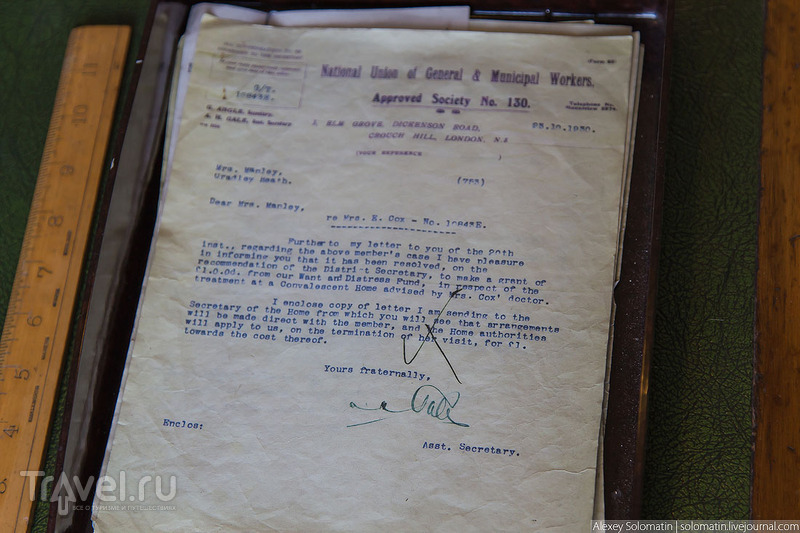 National Union of General & Municipal Workers.
Approved Society No. 130.
Secretary.
A. H. GALE, Asst. Secretary.
1, ELM GROVE, DICKENSON ROAD,
CROUCH HILL, LONDON, N.8
23.10.1930.
(YOUR REFERENCE
Mrs. Manley,
Cradley Heath.
(755)
Dear Mrs. Manley,
re Mrs. E. Cox - No. 10843E.
Further to my letter to you of the 20th
inst., regarding the above member's case I have pleasure
in informing you that it has been resolved, on the
recommendation of the District Secretary, to make a grant of
£1.0.0d. from our Want and Distress Fund, in respect of the
treatment at a Convalescent Home advised by Mrs. Cox' doctor.
I enclose copy of letter I am sending to the
Secretary of the Home from which you will see that arrangements
will be made direct with the member, and the Home authorities
will apply to us, on the termination of her visit, for £1.
towards the cost thereof.
Yours fraternally,
Gale
Enclos:
Asst. Secretary.
11
10
9
8
7
6
5
4
3
Travel.ru
ВСЕ О ТУРИЗМЕ И ПУТЕШЕСТВИЯХ
Alexey Solomatin | solomatin.livejournal.com